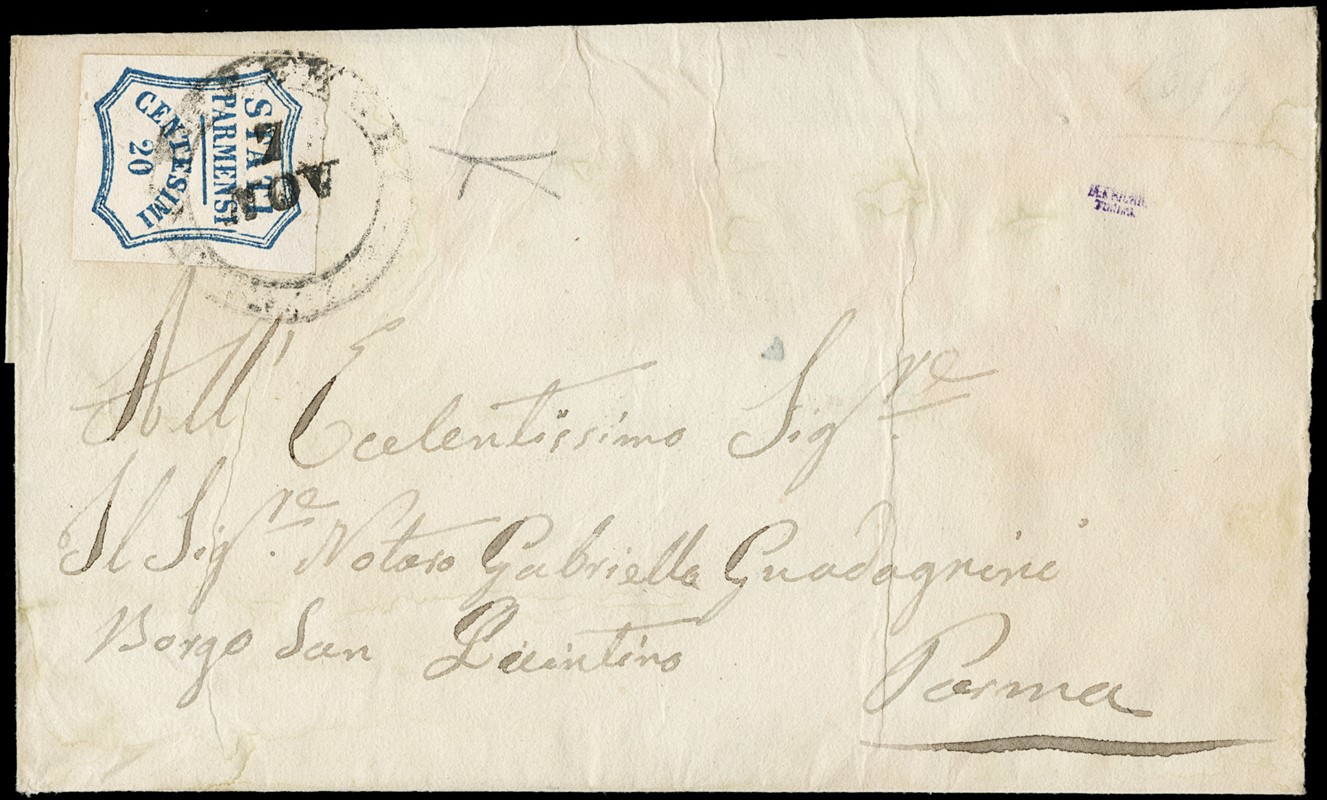 STATI
PARMENSI
CENTESIMI
20
7
NOV
All' Ecelentissimo Sig.re
Il Sig.re Notaro Gabriello Guadagnini
Borgo San Quintino
Parma